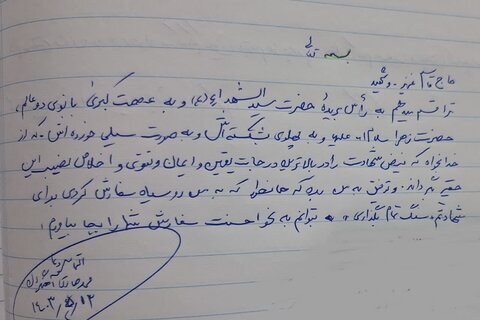 بسمه تعالی
حاج قاسم عزیز
ترا قسم میدهم به رأس بریدۀ حضرت سید الشهداء (ع) و به عصمت کبریٰ بانوی دو عالم،
حضرت زهرا سلام ا... علیها و به پهلوی شکسته اش و به صورت سیلی خورده اش که از
خدا بخواه که فیض شهادت را در بالاترین درجات یقین و ایمان و تقوی و اخلاص نصیب این
حقیر گرداند. و توفیق به من بده که همانطور که به من رو سیاه سفارش کردی برای
شهادتم سنگ تمام بگذاری، بتوانم به نحو احسنت سفارش شما را بجا بیاورم.
التماس دعا
۱۴۰۳/۵/۱۲